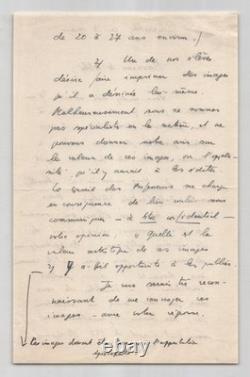 de 20 à 27 ans environ.)
2) Un de nos élèves
désire faire imprimer des images
qu'il a dessinées lui-même.
Malheureusement nous ne sommes
pas spécialistes en la matière, et ne
pouvons donner notre avis sur
la valeur de ces images, ou l'oppor-
tunité, qu'il y aurait à les éditer.
Le conseil des Professeurs me charge
en conséquence de bien vouloir nous
communiquer - à titre confidentiel -
votre opinion, 1) Quelle est la
valeur artistique de ces images
2) Y a-t-il opportunité à les publier
Je vous serais très recon-
naissant de me renvoyer ces
images - avec votre réponse.
Ces images doivent